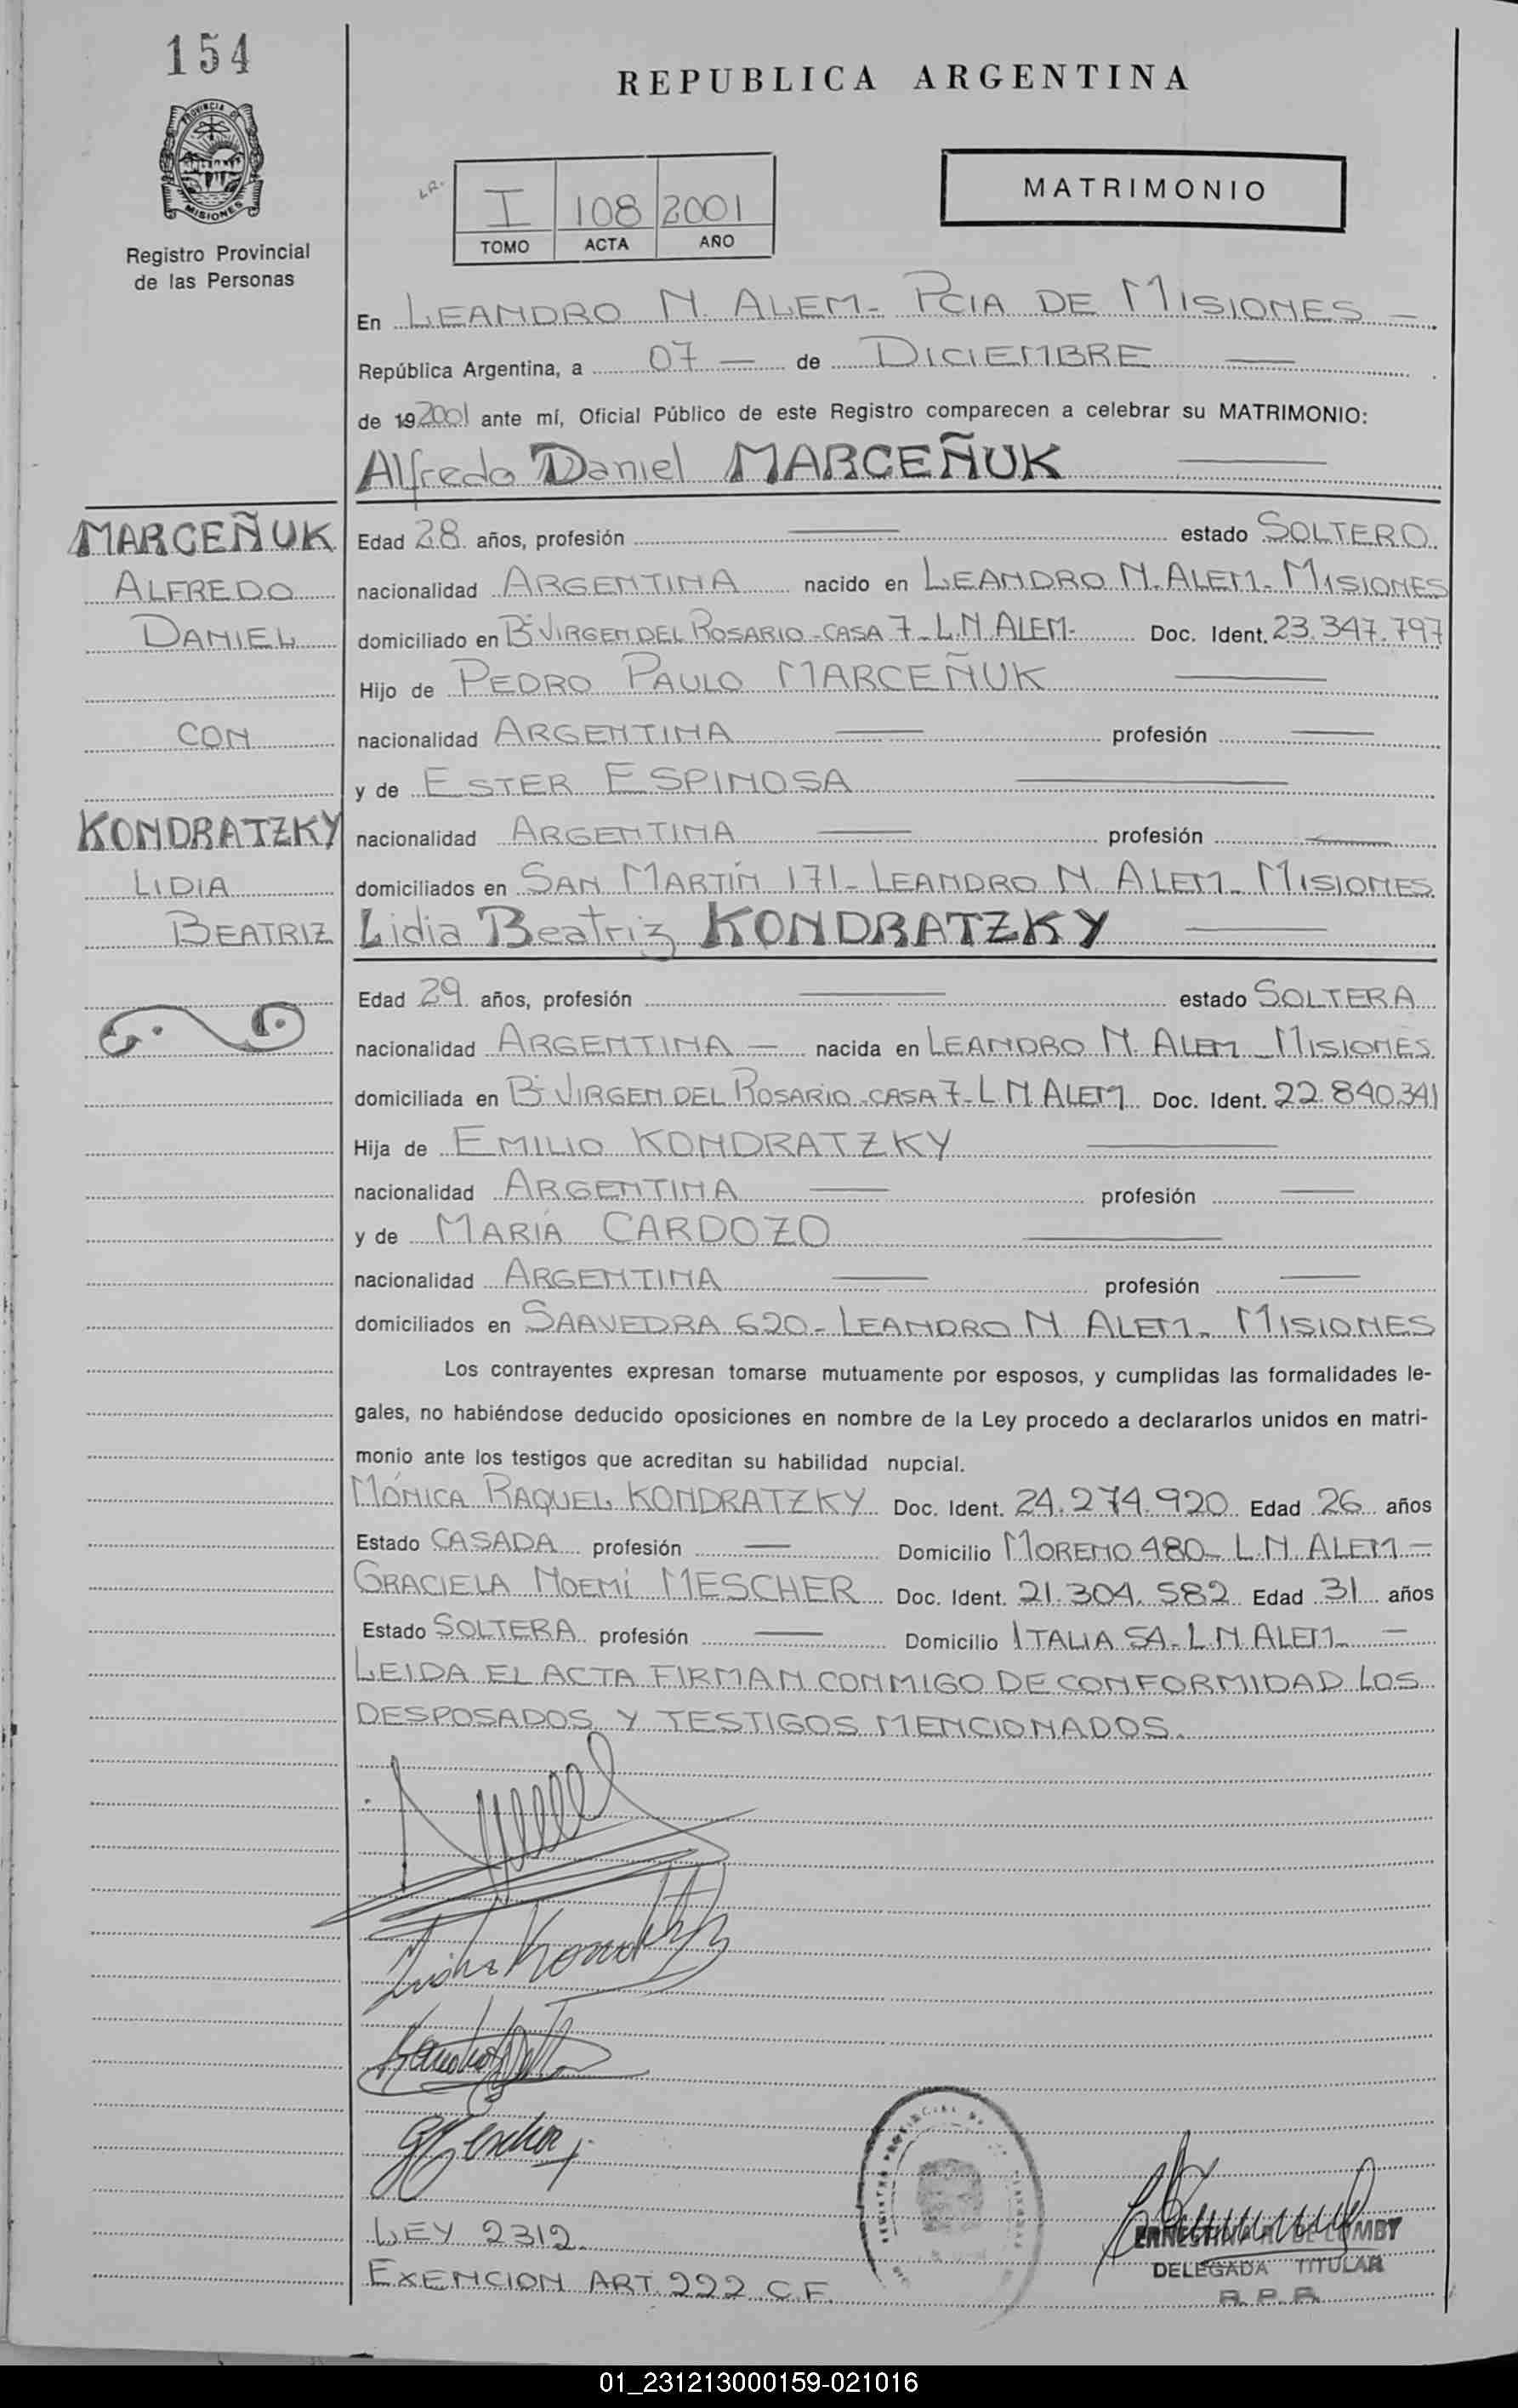 154
REPUBLICA ARGENTINA
PROVINCIA DE
MISIONES
Registro Provincial
de las Personas
L.R.
I 108 2001
TOMO ACTA AÑO
MATRIMONIO
En LEANDRO N. ALEM - PCIA DE MISIONES -
República Argentina, a 07 — de DICIEMBRE —
de 192001 ante mí, Oficial Público de este Registro comparecen a celebrar su MATRIMONIO:
Alfredo Daniel MARCEÑUK —
MARCEÑUK
ALFREDO
DANIEL
CON
KONDRATZKY
LIDIA
BEATRIZ
Edad 28 años, profesión — estado SOLTERO
nacionalidad ARGENTINA nacido en LEANDRO N. ALEM - MISIONES
domiciliado en Bº VIRGEN DEL ROSARIO - CASA 7 - L.N. ALEM - Doc. Ident. 23.347.797
Hijo de PEDRO PAULO MARCEÑUK —
nacionalidad ARGENTINA — profesión —
y de ESTER ESPINOSA —
nacionalidad ARGENTINA — profesión —
domiciliados en SAN MARTÍN 171 - LEANDRO N. ALEM - MISIONES
Lidia Beatriz KONDRATZKY —
Edad 29 años, profesión — estado SOLTERA
nacionalidad ARGENTINA — nacida en LEANDRO N. ALEM - MISIONES
domiciliada en Bº VIRGEN DEL ROSARIO - CASA 7 - L N ALEM Doc. Ident. 22.840.341
Hija de EMILIO KONDRATZKY —
nacionalidad ARGENTINA — profesión —
y de MARÍA CARDOZO —
nacionalidad ARGENTINA — profesión —
domiciliados en SAAVEDRA 620 - LEANDRO N ALEM - MISIONES
Los contrayentes expresan tomarse mutuamente por esposos, y cumplidas las formalidades le-
gales, no habiéndose deducido oposiciones en nombre de la Ley procedo a declararlos unidos en matri-
monio ante los testigos que acreditan su habilidad nupcial.
MÓNICA RAQUEL KONDRATZKY Doc. Ident. 24.274.920 Edad 26 años
Estado CASADA profesión — Domicilio MORENO 480 - L.N. ALEM -
GRACIELA NOEMÍ MESCHER Doc. Ident. 21.304.582 Edad 31 años
Estado SOLTERA profesión — Domicilio ITALIA 54 - L.N ALEM -
LEIDA EL ACTA FIRMAN CONMIGO DE CONFORMIDAD LOS
DESPOSADOS Y TESTIGOS MENCIONADOS.
LEY 2312.
EXENCION ART. 222 C.F.
DELEGADA TITULAR
R. P. P.
01_231213000159-021016